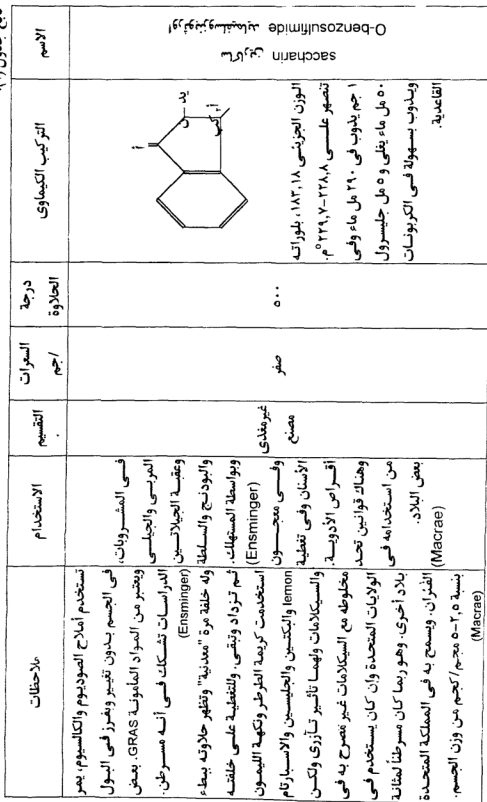 تابع جدول (٢).
الاسم
التركيب الكيماوى
درجة
الحلاوة
السعرات
/جم
التقسيم
الاستخدام
ملاحظات
saccharin ساكارين
O-benzosulfimide اورثوبنزوسلفيمايد
أ
ن
يد
كب
أ٢
الوزن الجزيئى ١٨٣,١٨، بلوراته
تنصهر علـــى ٢٢٨,٨-٢٢٩,٧ °م.
١ جم يذوب فى ٢٩٠ مل ماء وفى
٥٠ مل ماء يغلى و ٥ مل جليسرول
ويذوب بسهولة فى الكربونات
القاعدية.
٥٠٠
صفر
غير مغذى
مصنع
فـــى المشـروبات،
المربى والجيلـــى
وعقبـة الجيلاتـين
والبودنج والسلطة
وبواسطة المستهلك.
(Ensminger)
وفـــى معجـــون
الأسنان وفى تغطية
أقـراص الأدويـة.
وهناك قوانين تحد
مـن استخدامه فـى
بعض البلاد.
(Macrae)
تستخدم أملاح الصوديوم والكالسيوم. يمر
فى الجسم بدون تغيير ويفرز فى البول
ويعتبر من المواد المأمونة GRAS. بعض
الدراسات تشكك فـى أنـه مسـرطن.
(Ensminger)
وله خلفة مرة "معدنية" وتظهر حلاوته ببطء
ثـم تـزداد وتبقـى. وللتغطيـة علـى خلفتـه
استخدمت كريمة الطرطر ونكهة الليمـون
lemon والبكتين والجليسين والاسبارتام
والسيكلامات ولهمـا تأثـير تـآزرى ولكـن
مخلوطه مع السيكلامات غير مصرح به فى
الولايات المتحـدة وإن كان يستخدم فـى
بلاد أخرى. وهـو ربما كـان مسرطناً لمثانـة
الفئران. ويسمح به فى المملكة المتحدة
بنسبة ٢,٥-٥ مجم/كجم من وزن الجسم.
(Macrae)